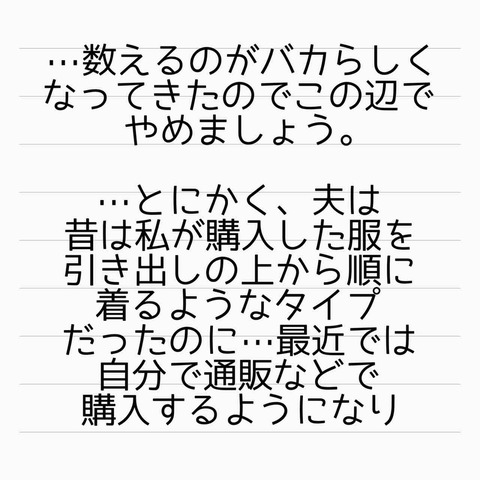 …数えるのがバカらしく
なってきたのでこの辺で
やめましょう。
…とにかく、夫は
昔は私が購入した服を
引き出しの上から順に
着るようなタイプ
だったのに…最近では
自分で通販などで
購入するようになり